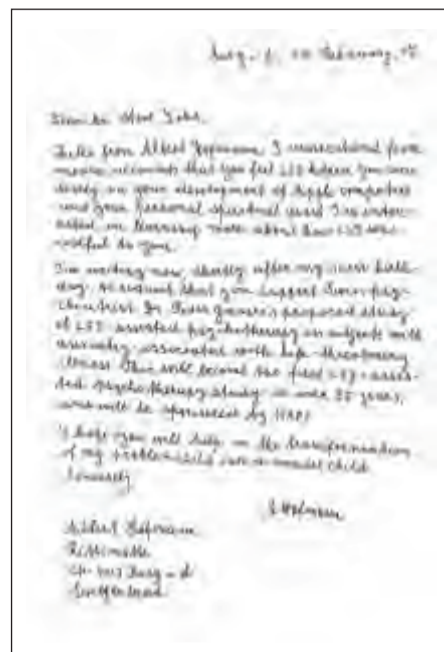 Dear Mr. Steve Jobs,
Hello from Albert Hofmann. I understand from
media accounts that you feel LSD helped you
in your development of Apple computers
and your personal spiritual quest. I'm inter-
ested in learning more about how LSD was
useful to you.
I'm writing now, shortly after my birth-
day, to request that you support Swiss psy-
chiatrist Dr. Peter Gasser's proposed study
of LSD-assisted psychotherapy in subjects with
anxiety associated with life-threatening
illness. This will become the first LSD-assis-
ted psychotherapy study in over 35 years,
and will be sponsored by MAPS.
I hope you will help in the transformation
of my problem child into a wonder child.
Sincerely
A. Hofmann
Albert Hofmann
Switzerland